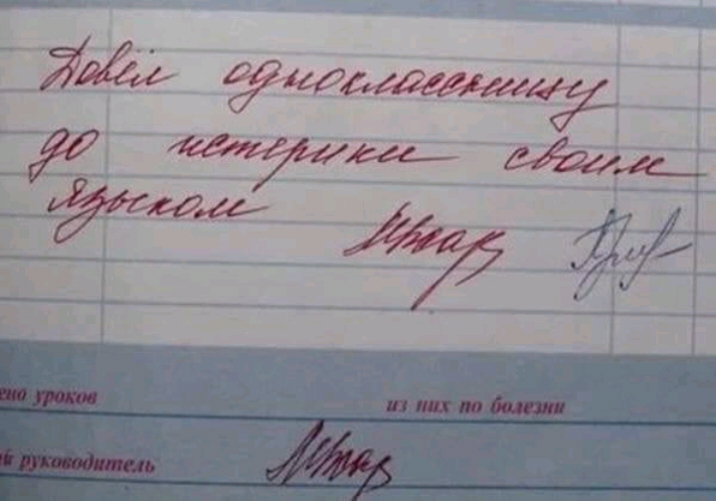 Довёл одноклассницу
до истерики своим
языком
ено уроков
из них по болезни
ый руководитель